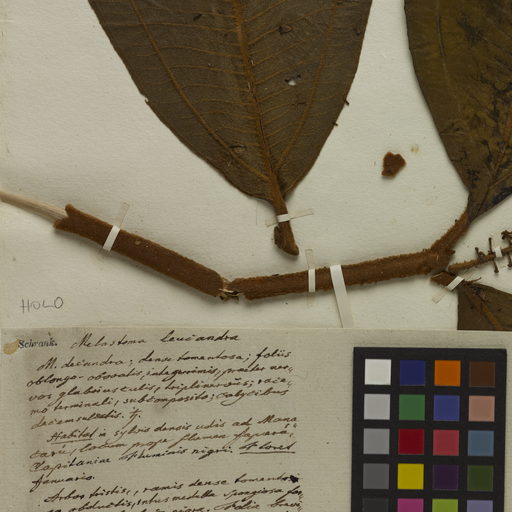 HOLO
Schrank. Melastoma leucandra
M. decandra; dense tomentosa; foliis
oblongo-obovatis, integerrimis, praeter ner-
vos glabriusculis, triplinerviis; race-
mo terminali, subcomposito; calycibus
decemsulcatis. ♄.
Habitat in sylvis densis udis ad Mana
prope flumen Japurá,
Capitaniae fluminis nigri. Floret
Januario.
Arbor tristis, ramis dense tomentosi
obductis, intus medulla spongiosa
Folia